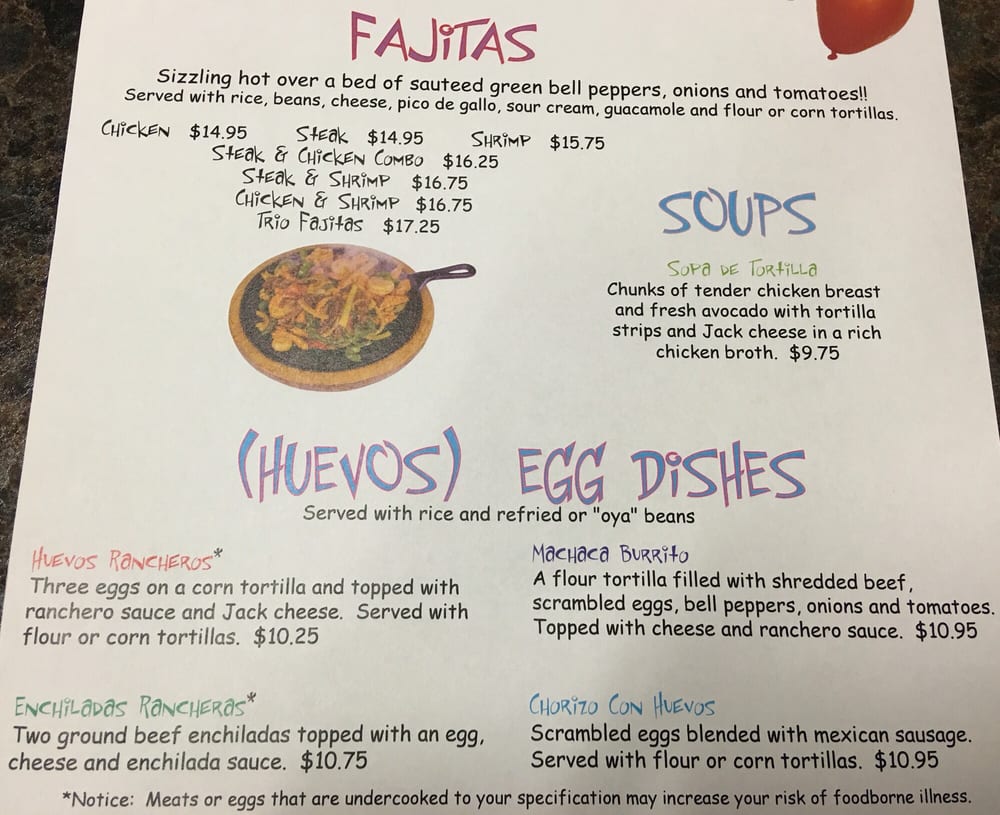 FAJITAS
Sizzling hot over a bed of sauteed green bell peppers, onions and tomatoes!!
Served with rice, beans, cheese, pico de gallo, sour cream, guacamole and flour or corn tortillas.
Chicken $14.95 Steak $14.95 Shrimp $15.75
Steak & Chicken Combo $16.25
Steak & Shrimp $16.75
Chicken & Shrimp $16.75
Trio Fajitas $17.25
SOUPS
Sopa de Tortilla
Chunks of tender chicken breast
and fresh avocado with tortilla
strips and Jack cheese in a rich
chicken broth. $9.75
(HUEVOS) EGG DISHES
Served with rice and refried or "oya" beans
Huevos Rancheros*
Three eggs on a corn tortilla and topped with
ranchero sauce and Jack cheese. Served with
flour or corn tortillas. $10.25
Machaca Burrito
A flour tortilla filled with shredded beef,
scrambled eggs, bell peppers, onions and tomatoes.
Topped with cheese and ranchero sauce. $10.95
Enchiladas Rancheras*
Two ground beef enchiladas topped with an egg,
cheese and enchilada sauce. $10.75
Chorizo Con Huevos
Scrambled eggs blended with mexican sausage.
Served with flour or corn tortillas. $10.95
*Notice: Meats or eggs that are undercooked to your specification may increase your risk of foodborne illness.